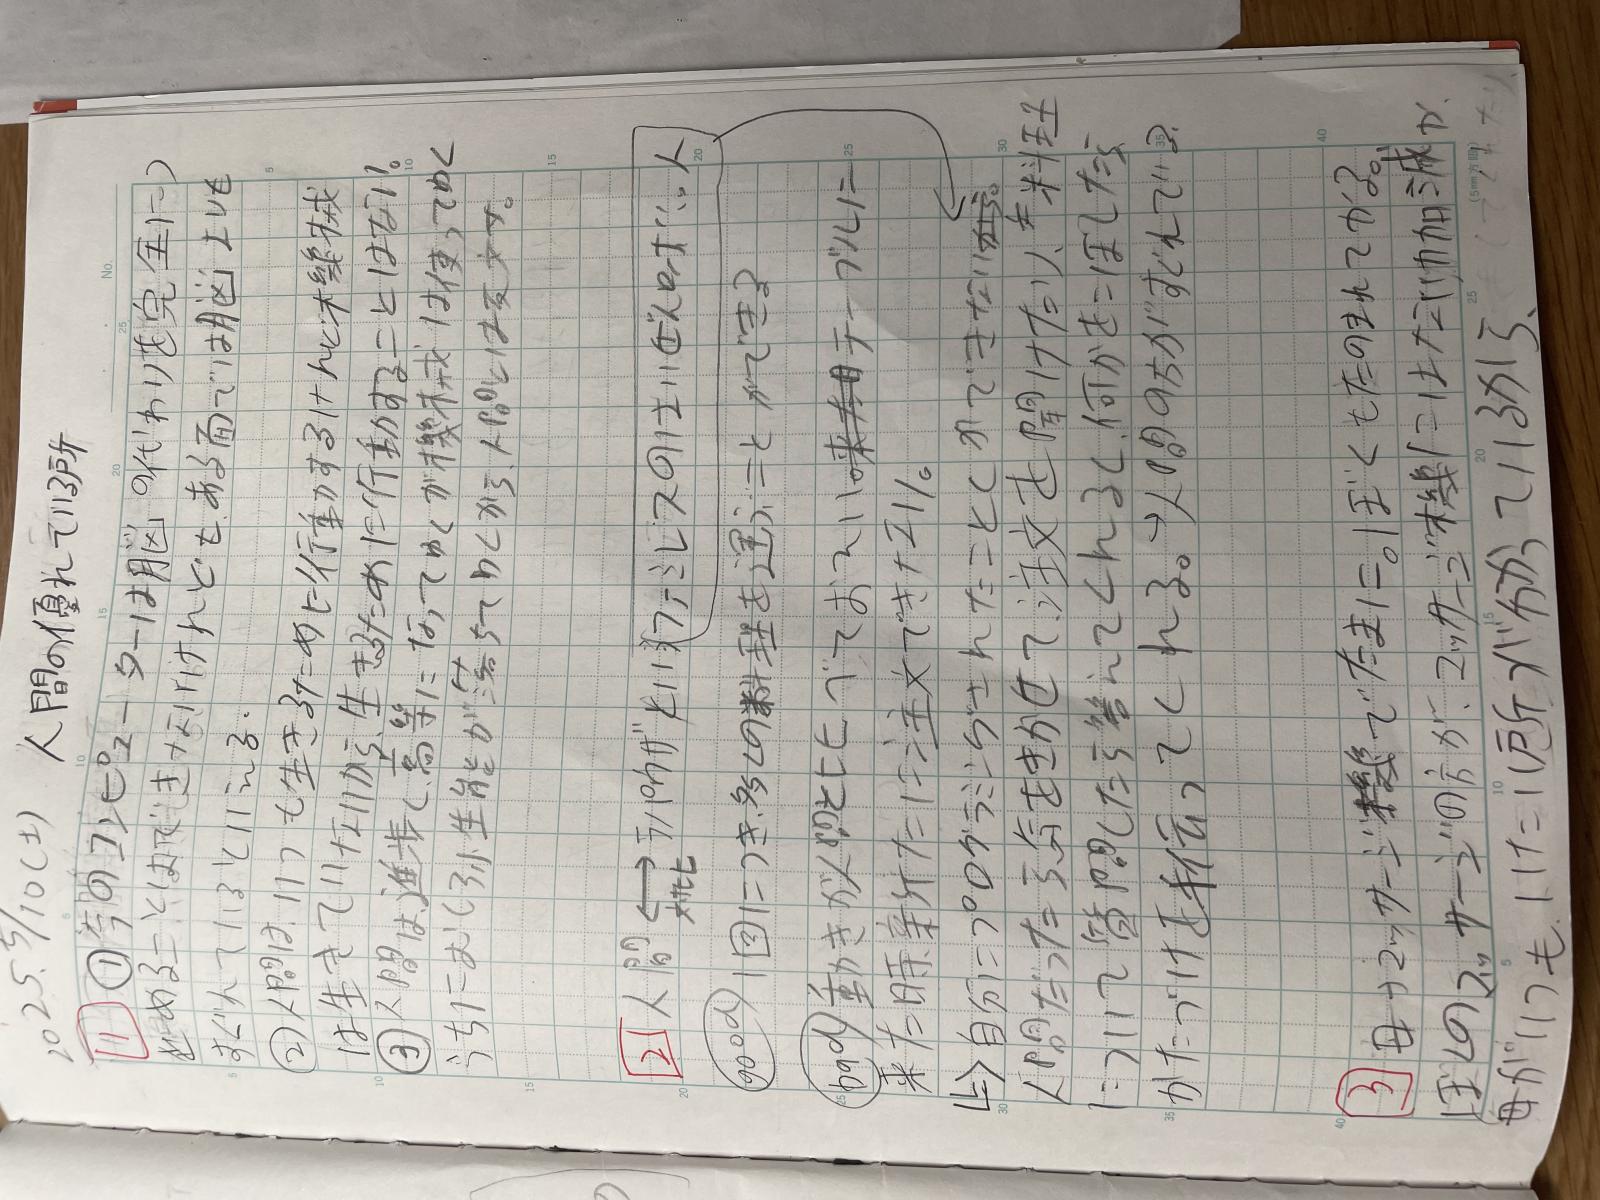 2025.5/10(土) 人間の優れている所
No.
[1] ①今のコンピューターは脳の代わりを完全に
つとめることはできないけれども、ある面では脳よりも
すぐれているといえる.
②人間は、いつも生きるために行動するけれど、機械
は生きていないから、生きるために行動することはない。
③人間は進歩し、高等になってゆくが機械は使ってゆく
うちにむしろ、性能が落ちてゆくから、人間とは変す。
[2] 人間 ⟷ ライバルがといえば (ファミレスのはいぜんロボット
対比
good 1回につき、多くの料理を運ぶことができる
bad 動きが人間とくらべておそい。来テーブルに
来た時案外たいに注文できない。
今、自分につのようにうごきされたことしかできない
人間だったら、点をきかせて、注文を聞けたり、を料理
について質問したら答えてくれるし、何かをこぼしたら
かたづけを手伝ってくれる。→人間の方がすぐれている.
[3] 母→マッサージ機でたまに。ぼくもたのまれてやる。
ぼくのマッサージの方が、マッサージ機にはない力加減や、
母がいつも、いたい所が分かっているから、